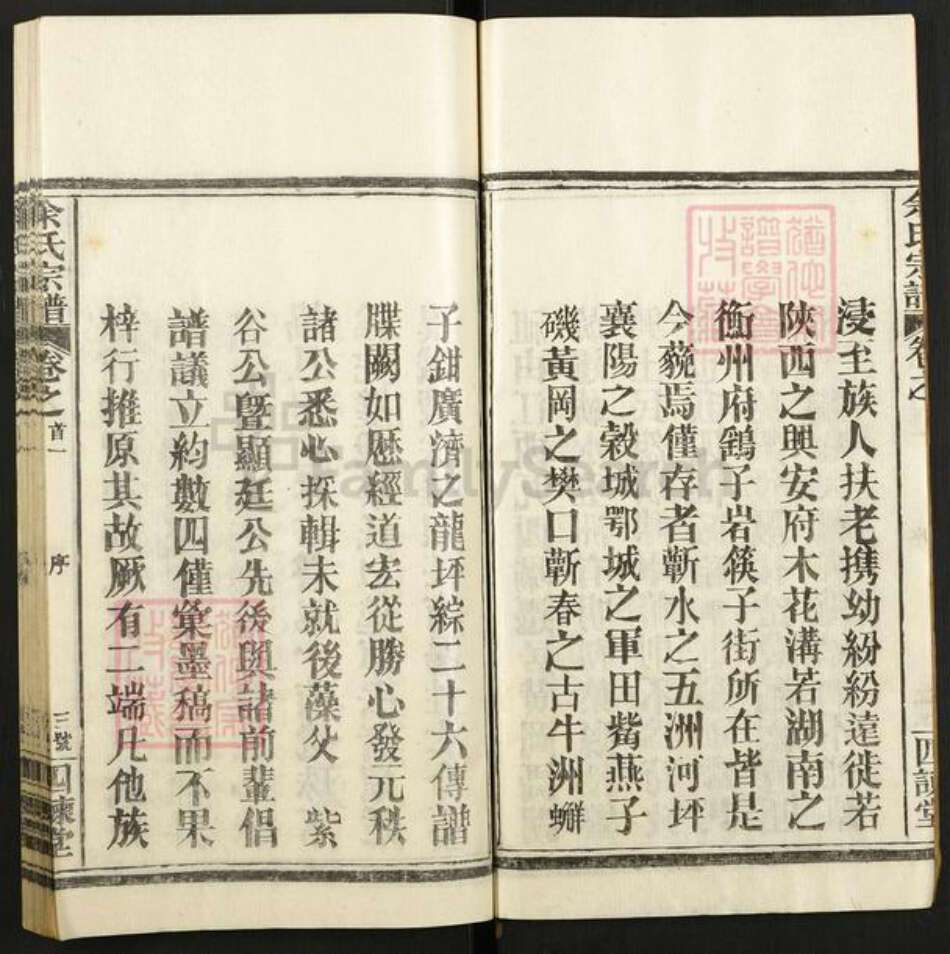 浸至族人扶老携幼紛紛遠徙若
陝西之興安府木花溝若湖南之
衡州府鷂子岩筷子街所在皆是
今藐焉僅存者蘄水之五洲河坪
襄陽之穀城鄂城之軍田觜燕子
磯黃岡之樊口蘄春之古牛洲蠏
子鉗廣濟之龍坪綜二十六傳譜
牒闕如歷經道宏從勝心發元秩
諸公悉心採輯未就後藻父 紫
谷公曁顯廷公先後與諸前輩倡
譜議立約數四僅彙墨稿而不果
梓行推原其故厥有二端凡他族
余氏宗譜 卷之首一 序 三號 四諫堂
余氏宗譜 卷之 四諫堂
FamilySearch